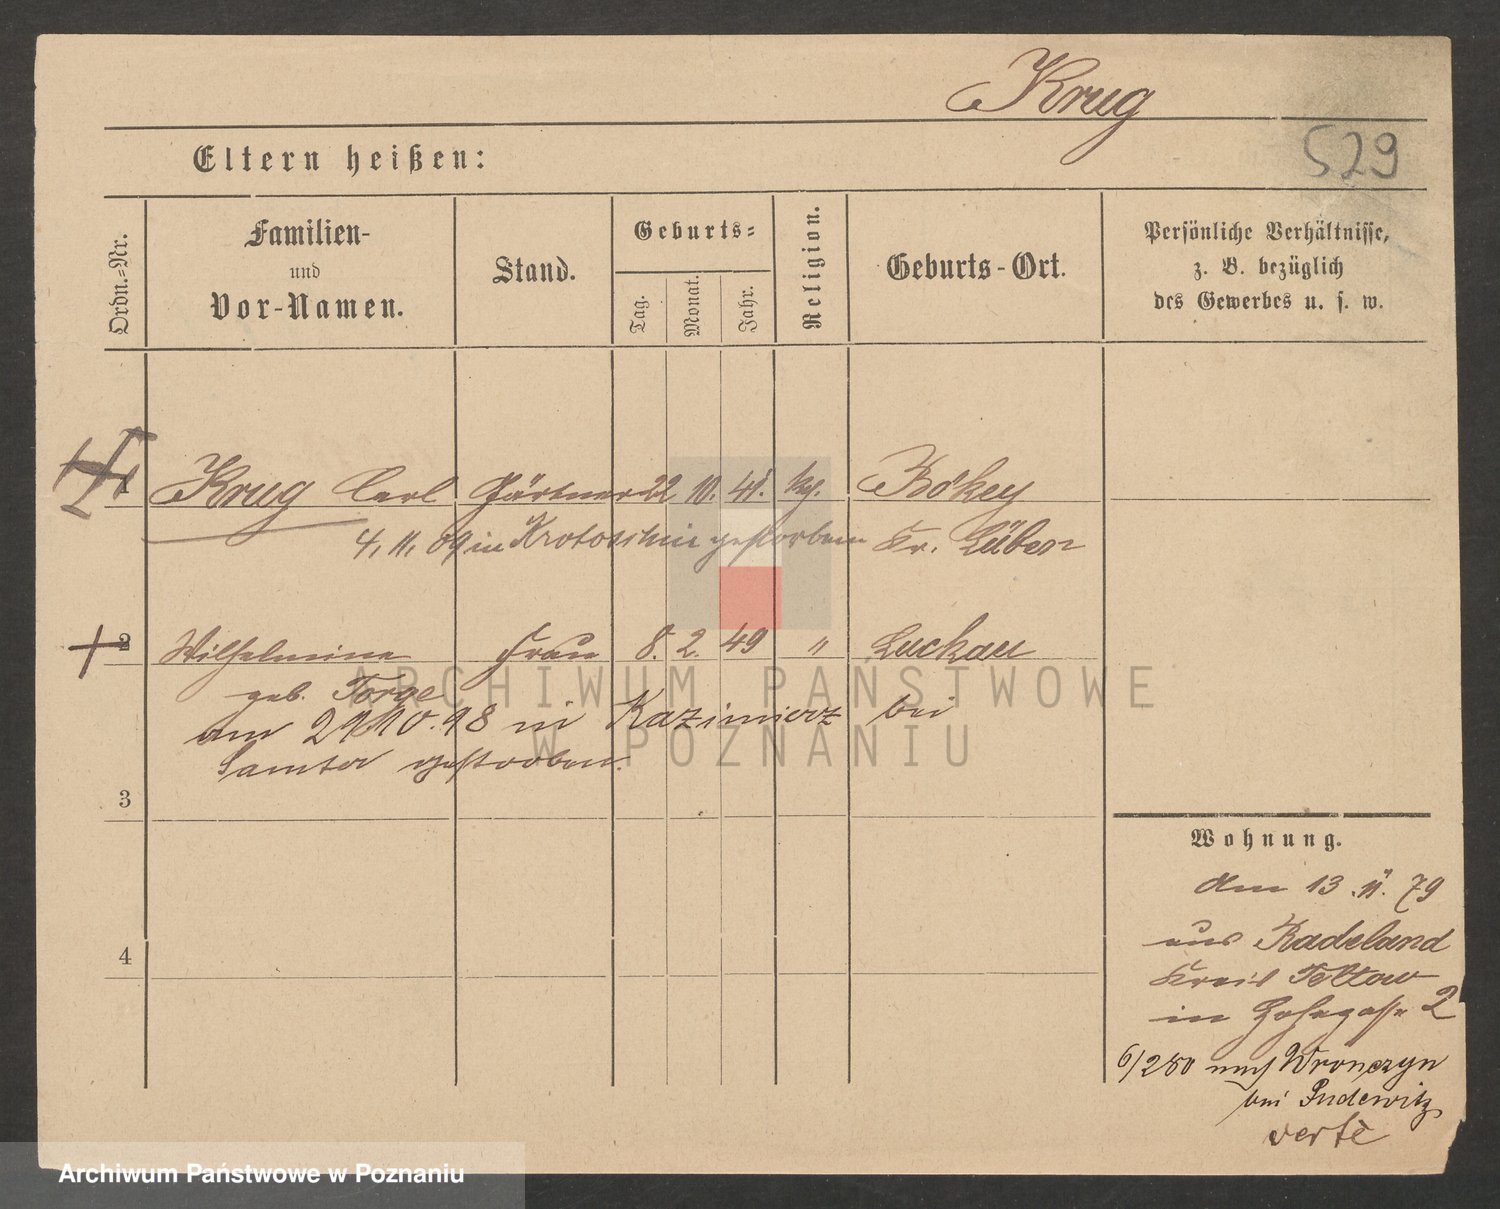 Krug
529
Eltern heißen:
Ordn.=Nr.
Familien-
und
Vor-Namen.
Stand.
Geburts=
Tag.
Monat.
Jahr.
Religion.
Geburts-Ort.
Persönliche Verhältnisse,
z. B. bezüglich
des Gewerbes u. s. w.
1 Krug Carl Gärtner 22 10. 41.
4. 11. 09 in Krotoschin gestorben Kr. Lüben
2 Wilhelmine Frau 8. 2. 49 " Luckau
geb. Torge
am 29 10. 98 in Kazimierz bei
Samter gestorben.
3
4
Wohnung.
den 13. 11. 79
aus Radeland
Kreis Teltow
in Hohegasse 2
6/2 80 nach Wronczyn
bei Pudewitz
verte
ARCHIWUM PAŃSTWOWE
W POZNANIU
Archiwum Państwowe w Poznaniu